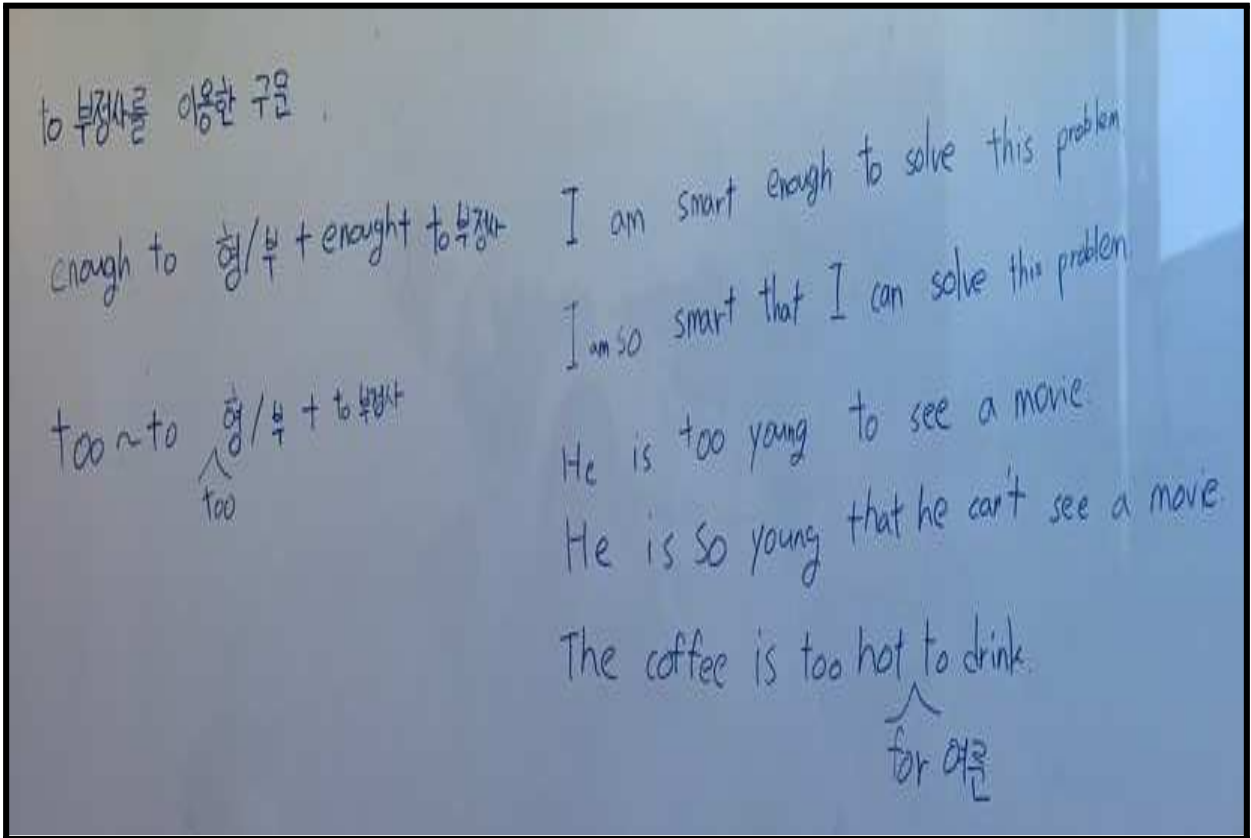 to 부정사를 이용한 구문.
enough to 형/부 + enought to부정사
too ~ to 형/부 + to 부정사
too
I am smart enough to solve this problem
I am so smart that I can solve this problem
He is too young to see a movie.
He is so young that he can't see a movie.
The coffee is too hot to drink.
for 여른